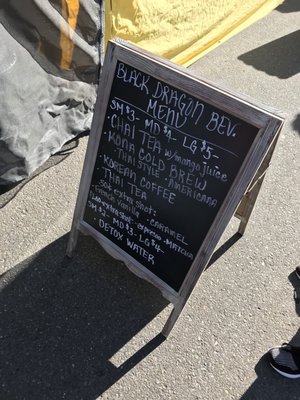 BLACK DRAGON BEV.
MENU
SM $3- MD $4- LG $5-
• CHAI TEA w/mango juice
• KONA COLD BREW
• THAI STYLE AMERICANA
• KOREAN COFFEE
• THAI TEA
50¢ extra shot:
• French vanilla • CARAMEL
extra shot: • espresso • Matcha
SM $2- MD $3- LG $4-
• DETOX WATER